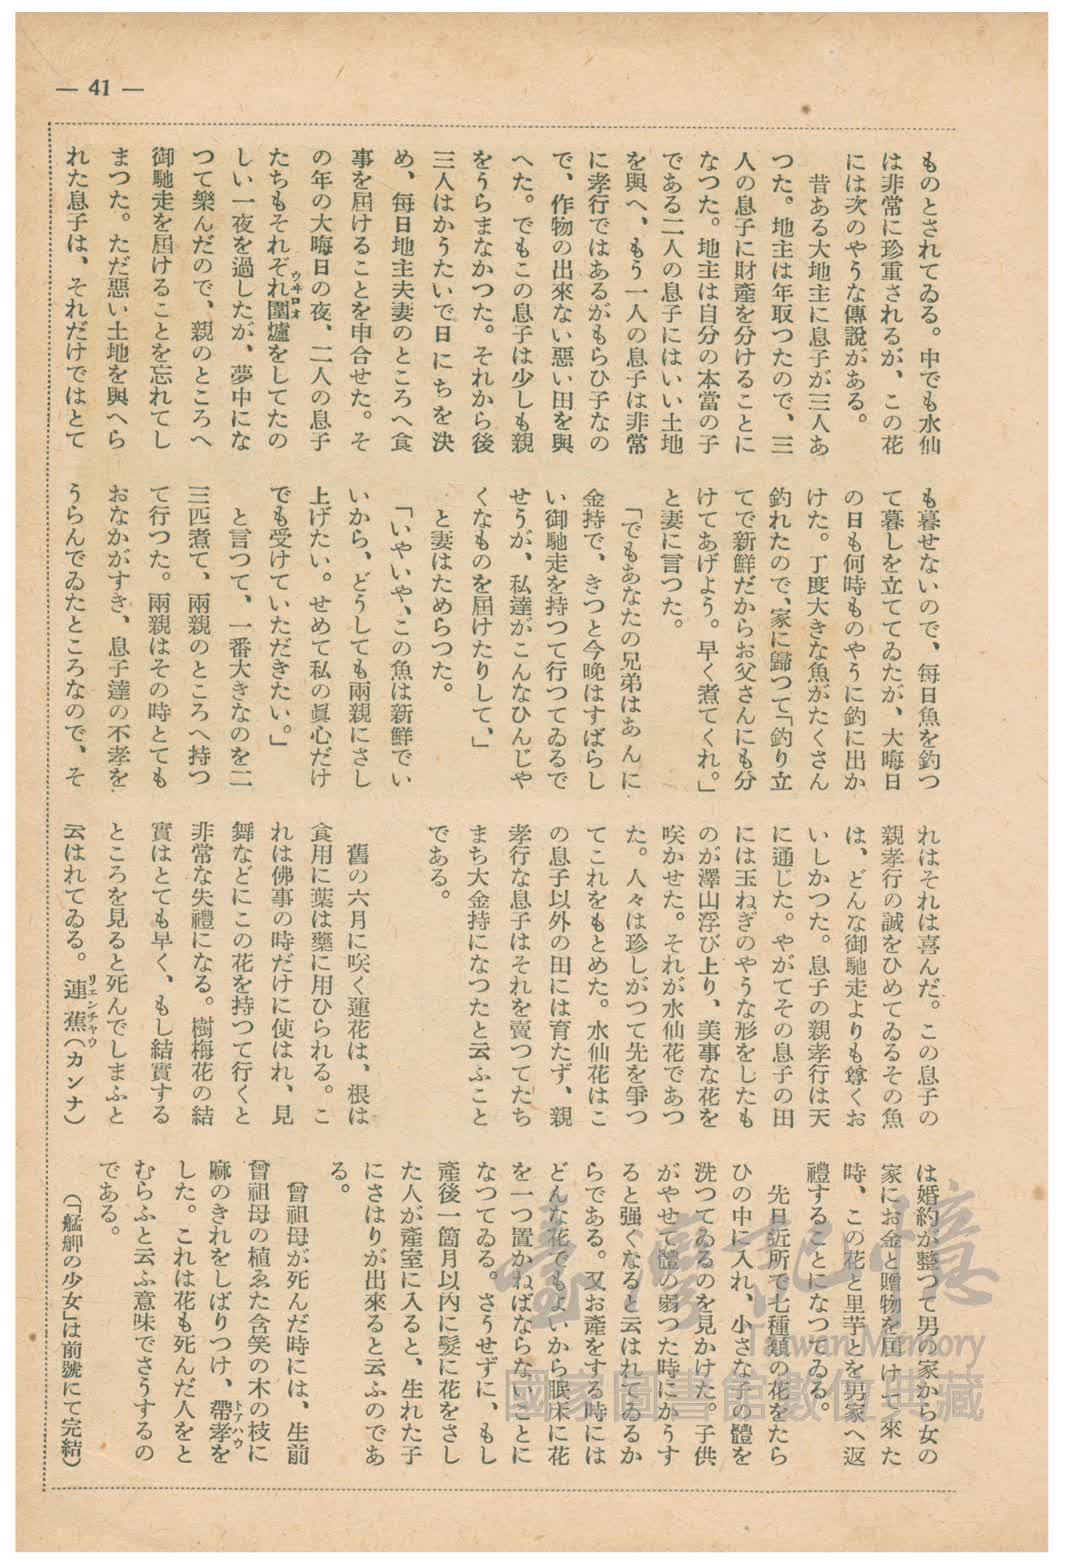 — 41 —
ものとされてゐる。中でも水仙
は非常に珍重されるが、この花
には次のやうな傳說がある。
昔ある大地主に息子が三人あ
つた。地主は年取つたので、三
人の息子に財產を分けることに
なつた。地主は自分の本當の子
である二人の息子にはいい土地
を與へ、もう一人の息子は非常
に孝行ではあるがもらひ子なの
で、作物の出來ない惡い田を與
へた。でもこの息子は少しも親
をうらまなかつた。それから後
三人はかうたいで日にちを決
め、每日地主夫妻のところへ食
事を屆けることを申合せた。そ
の年の大晦日の夜、二人の息子
たちもそれぞれ圍爐をしてたの
ウヰロオ
しい一夜を過したが、夢中にな
つて樂んだので、親のところへ
御馳走を屆けることを忘れてし
まつた。ただ惡い土地を與へら
れた息子は、それだけではとて
も暮せないので、每日魚を釣つ
て暮しを立ててゐたが、大晦日
の日も何時ものやうに釣に出か
けた。丁度大きな魚がたくさん
釣れたので、家に歸つて「釣り立
てで新鮮だからお父さんにも分
けてあげよう。早く煮てくれ。」
と妻に言つた。
「でもあなたの兄弟はあんに
金持で、きつと今晚はすばらし
い御馳走を持つて行つてゐるで
せうが、私達がこんなひんじや
くなものを屆けたりして、」
と妻はためらつた。
「いやいや、この魚は新鮮でい
いから、どうしても兩親にさし
上げたい。せめて私の眞心だけ
でも受けていただきたい。」
と言つて、一番大きなのを二
三匹煮て、兩親のところへ持つ
て行つた。兩親はその時とても
おなかがすき、息子達の不孝を
うらんでゐたところなので、そ
れはそれは喜んだ。この息子の
親孝行の誠をひめてゐるその魚
は、どんな御馳走よりも尊くお
いしかつた。息子の親孝行は天
に通じた。やがてその息子の田
には玉ねぎのやうな形をしたも
のが澤山浮び上り、美事な花を
咲かせた。それが水仙花であつ
た。人々は珍しがつて先を爭つ
てこれをもとめた。水仙花はこ
の息子以外の田には育たず、親
孝行な息子はそれを賣つてたち
まち大金持になつたと云ふこと
である。
舊の六月に咲く蓮花は、根は
食用に葉は藥に用ひられる。こ
れは佛事の時だけに使はれ、見
舞などにこの花を持つて行くと
非常な失禮になる。樹梅花の結
實はとても早く、もし結實する
ところを見ると死んでしまふと
云はれてゐる。蓮蕉(カンナ)
リエンチヤウ
は婚約が整つて男の家から女の
家にお金と贈物を屆けて來た
時、この花と里芋とを男家へ返
禮することになつてゐる。
先日近所で七種類の花をたら
ひの中に入れ、小さな子の體を
洗つてゐるのを見かけた。子供
がやせて體の弱つた時にかうす
ると强くなると云はれてゐるか
らである。又お產をする時には
どんな花でもよいから眠床に花
を一つ置かねばならないことに
なつてゐる。さうせずに、もし
產後一箇月以內に髮に花をさし
た人が產室に入ると、生れた子
にさはりが出來ると云ふのであ
る。
曾祖母が死んだ時には、生前
曾祖母の植ゑた含笑の木の枝に
麻のきれをしばりつけ、帶孝を
トアハウ
した。これは花も死んだ人をと
むらふと云ふ意味でさうするの
である。
(「艋舺の少女」は前號にて完結)
臺灣記憶
Taiwan Memory
國家圖書館數位典藏